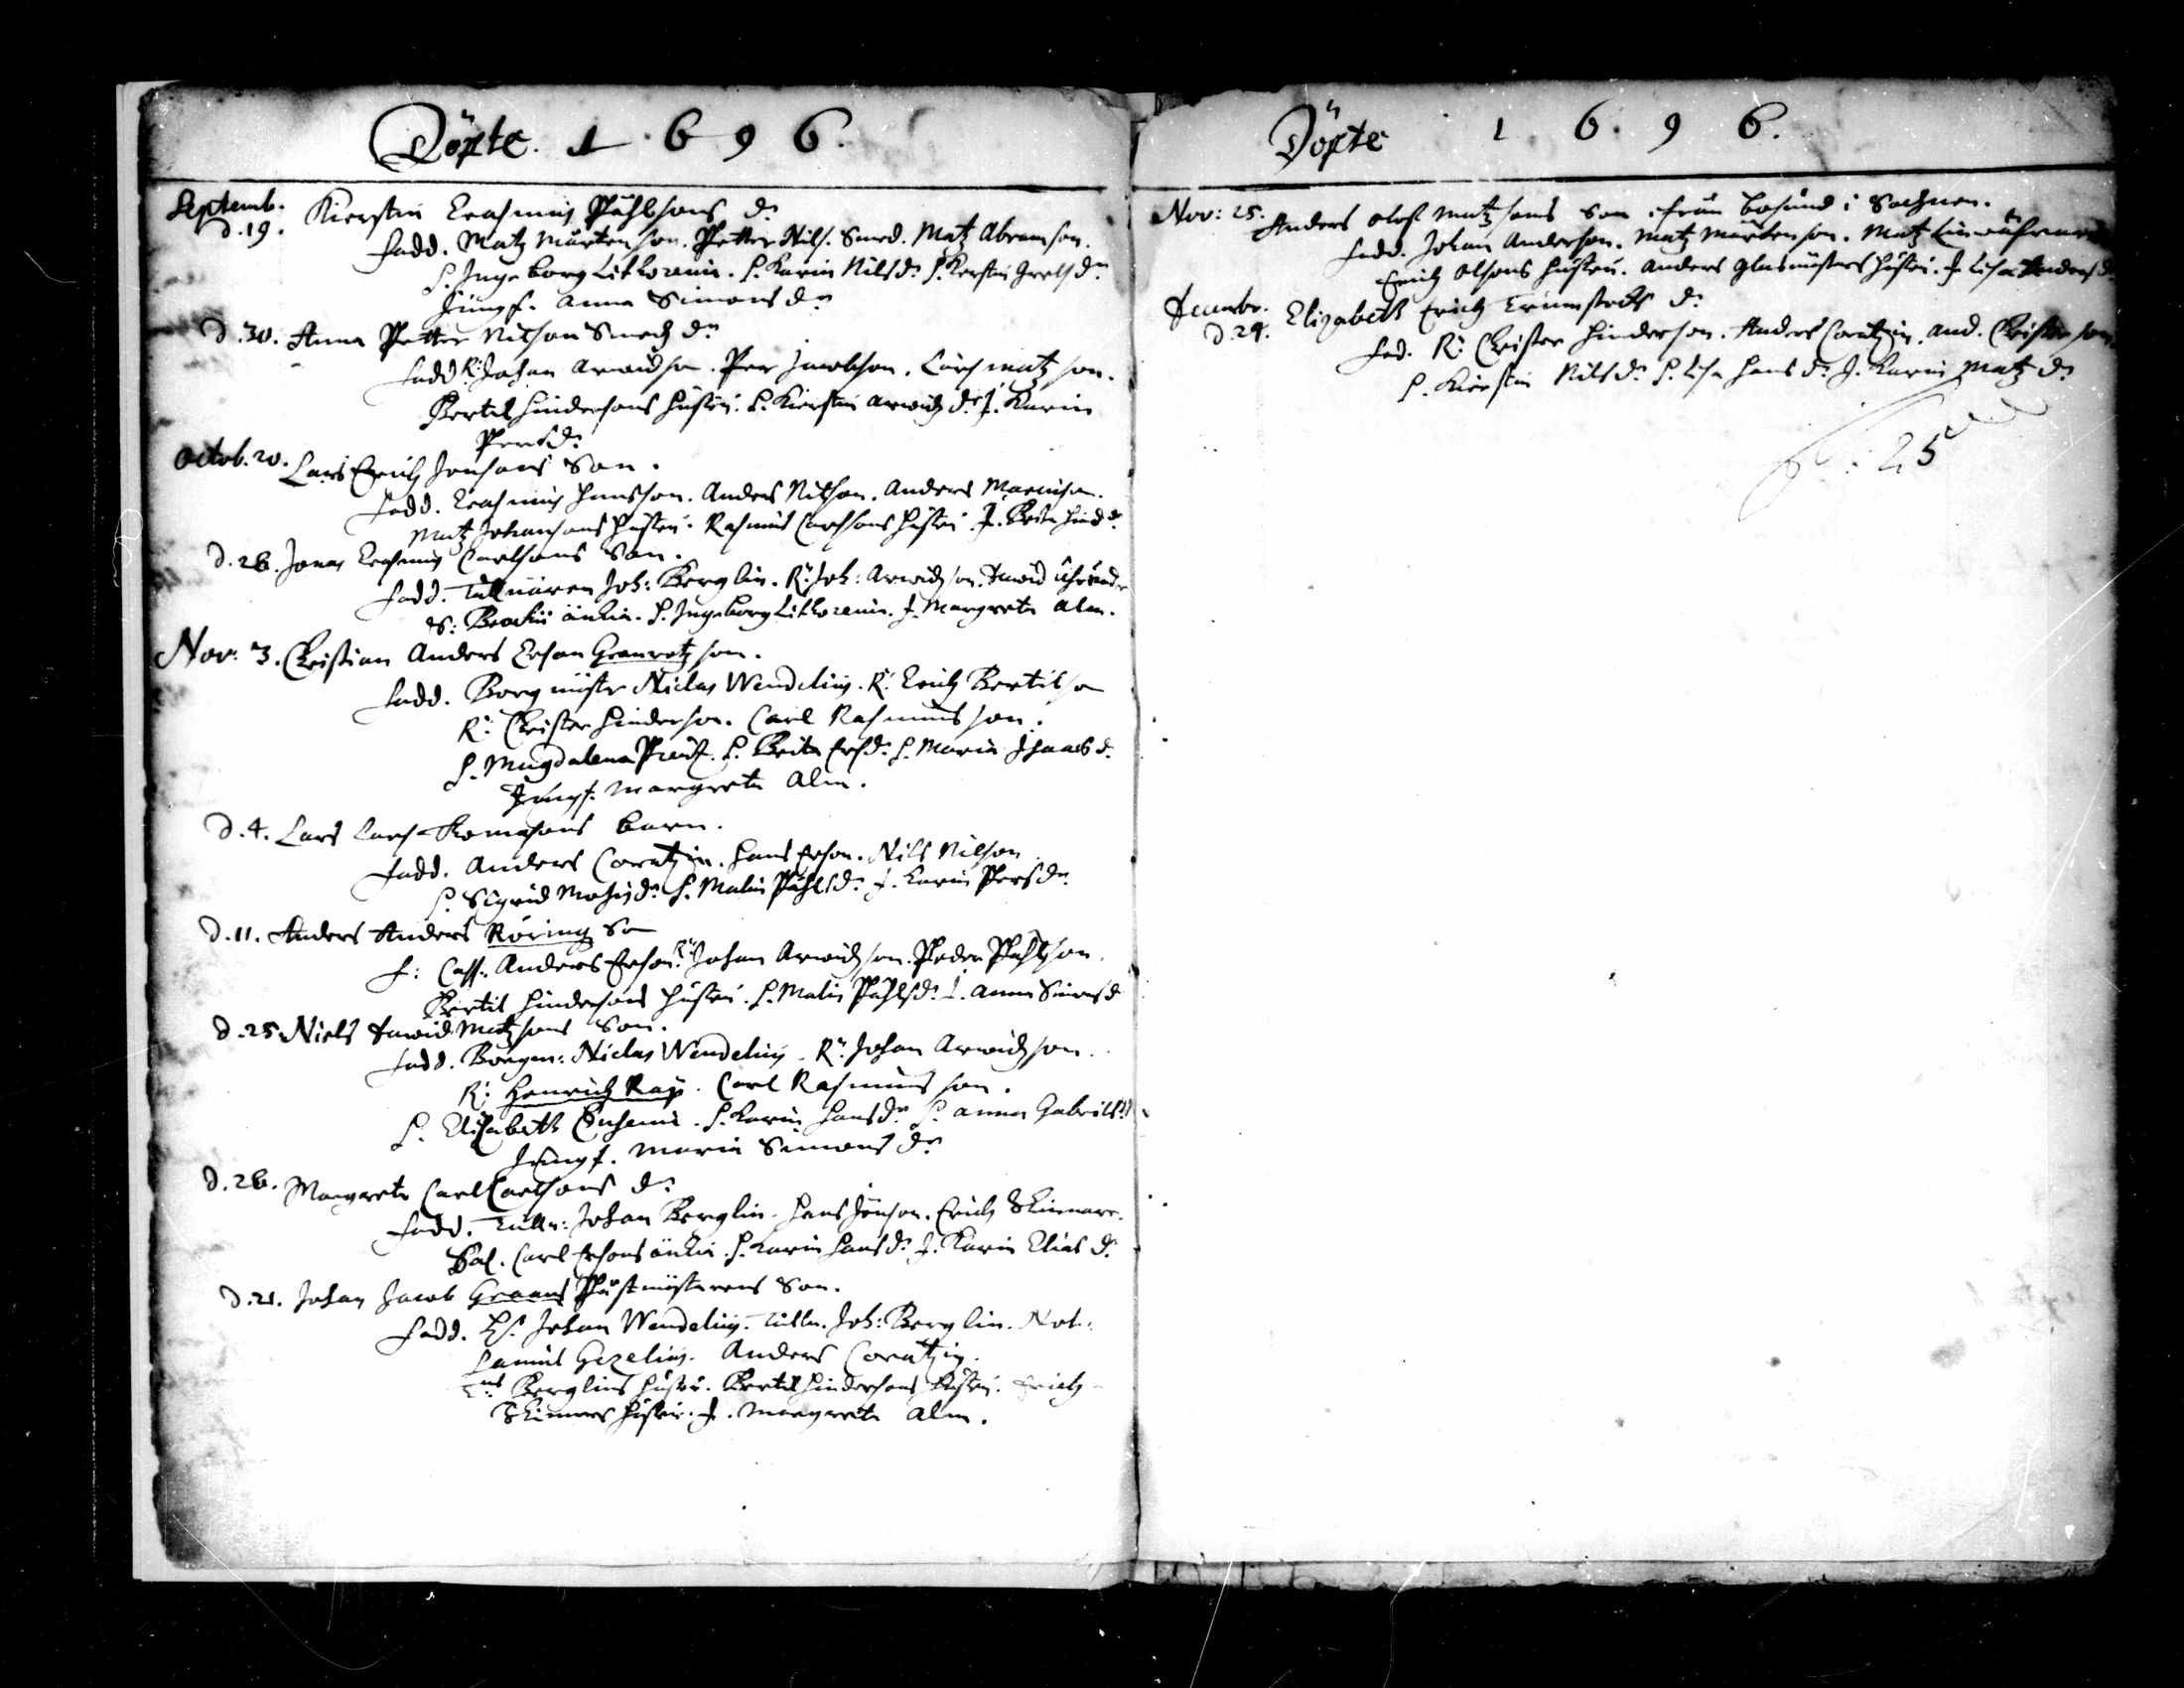 Döpte. 1696.
Septemb.
d. 19. Kierstin Erasmus Påhlsons dr
Fadd. Matz Mårtenson. Petter Nils. Smed. Matz Abramson.
H. Ingeborg Litkorenia. H. Karin Nilsdr H. Kerstin Grelsdr
Jungf. Anna Simonsdr
d. 30. Anna Petter Nilson Smedz dr
Fadd. R: Johan Arwidson. Per Jacobson. Lars Matzson.
Bertil Hindersons hustru. H. Kierstin Arwidzdr J. Karin
Persdr
Octob. 20. Lars Erich Jonsons Son.
Fadd. Erasmus Hansson. Anders Nilson. Anders Marcuson.
Matz Johansons hustru. Rasmus Carlsons hustru. J. Brita Hindr
d. 26. Jonas Erasmus Carlsons Son.
Fadd. Tullnären Joh: Berglin. R: Joh: Arwidzson. Dawid
S: Brockij änkia. H. Ingeborg Litkorenia. J. Margreta Alm.
Nov: 3. Christian Anders Erson Granrotz son.
Fadd. Borgmästr Niclas Wendelius. R: Erich Bertilson
R: Christer Hinderson. Carl Rasmusson.
H. Magdalena H. Brita Ersdr H. Maria Isaacsd.
Jungf. Margreta Alm.
d. 4. Lars Lars Thomasons barn.
Fadd. Anders Coratzin. Hans Erson. Nils Nilson
H. Sigrid H. Malin Påhlsdr J. Karin Persdr
d. 11. Anders Anders Röring So
F: Cass. Anders Erson. R: Johan Arwidzson. Peder Påhlson.
Bertil Hindersons hustru. H. Malin Påhlsdr J. Anna Simonsd
d. 25 Niels Dawid Matzsons Son.
Fadd. Borgm: Niclas Wendelius. R: Johan Arwidzson.
R: Henrich Carl Rasmusson.
H. Elisabeth H. Karin Hansdr H. Anna Gabrielsdr
Jungf. Maria Simonsdr
d. 26. Margreta Carl Carlsons dr
Fadd. Tulln: Johan Berglin. Hans Jönson. Erich Skinnare.
Sal. Carl Ersons änkia. H. Karin Hansdr J. Karin Eliasdr
d. 21. Johan Jacob Graans Påstmästarens Son.
Fadd. Johan Wendelius. Tulln. Joh: Berglin. Not:
Gezelius. Anders Coratzin.
Berglins hustru. Bertil Hindersons hustru. Erich
Skinnars hustru. J. Margreta Alm.
Döpte 1696.
Nov: 25. Anders Olof Matzsons Son ifrån Bosund i Sochnen.
Fadd. Johan Anderson. Matz Mårtenson. Matz
Erich Olsons hustru. Anders Glasmästars hustru. J. Lisa Andersd
Decembr.
d. 24. Elizabeth Erich dr
Fad. R: Christer Hinderson. Anders Coratzin. And. Christerson.
H. Kierstin Nilsdr H. Lisa Hansdr J. Karin Matzdr
: 25